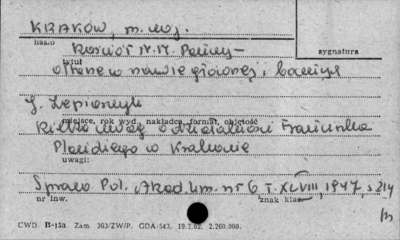 KRAKÓW, m. woj.
hasło
Kościół N.M. Panny-
sygnatura
tytuł
w nawie głównej i
J. Lepiarczyk
miejsce, rok wyd., nakładca, format, objętość
Kilka uwag o działalności Franciszka
Placidiego w Krakowie
uwagi:
Spraw. Pol. Akad. Um. nr 6 T. XLVIII, 1947, s. 214
nr inw.
znak klas.
CWD. B-15a. Zam. 363/ZW/P. GDA-543. 19.2.62. 2.260.000.